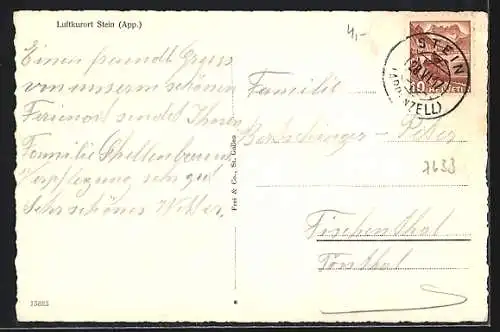 Luftkurort Stein (App.)
4,-
STEIN
(APPENZELL)
10 HELVETIA
Einen freundl. Gruss
von unserm schönen
Ferienort sendet Ihnen
Familie Schellenbaum
Verpflegung sehr gut
Sehr schönes Wetter.
Frei & Co., St. Gallen
Familie
-Peter
7633
Fischenthal
Tössthal
15825